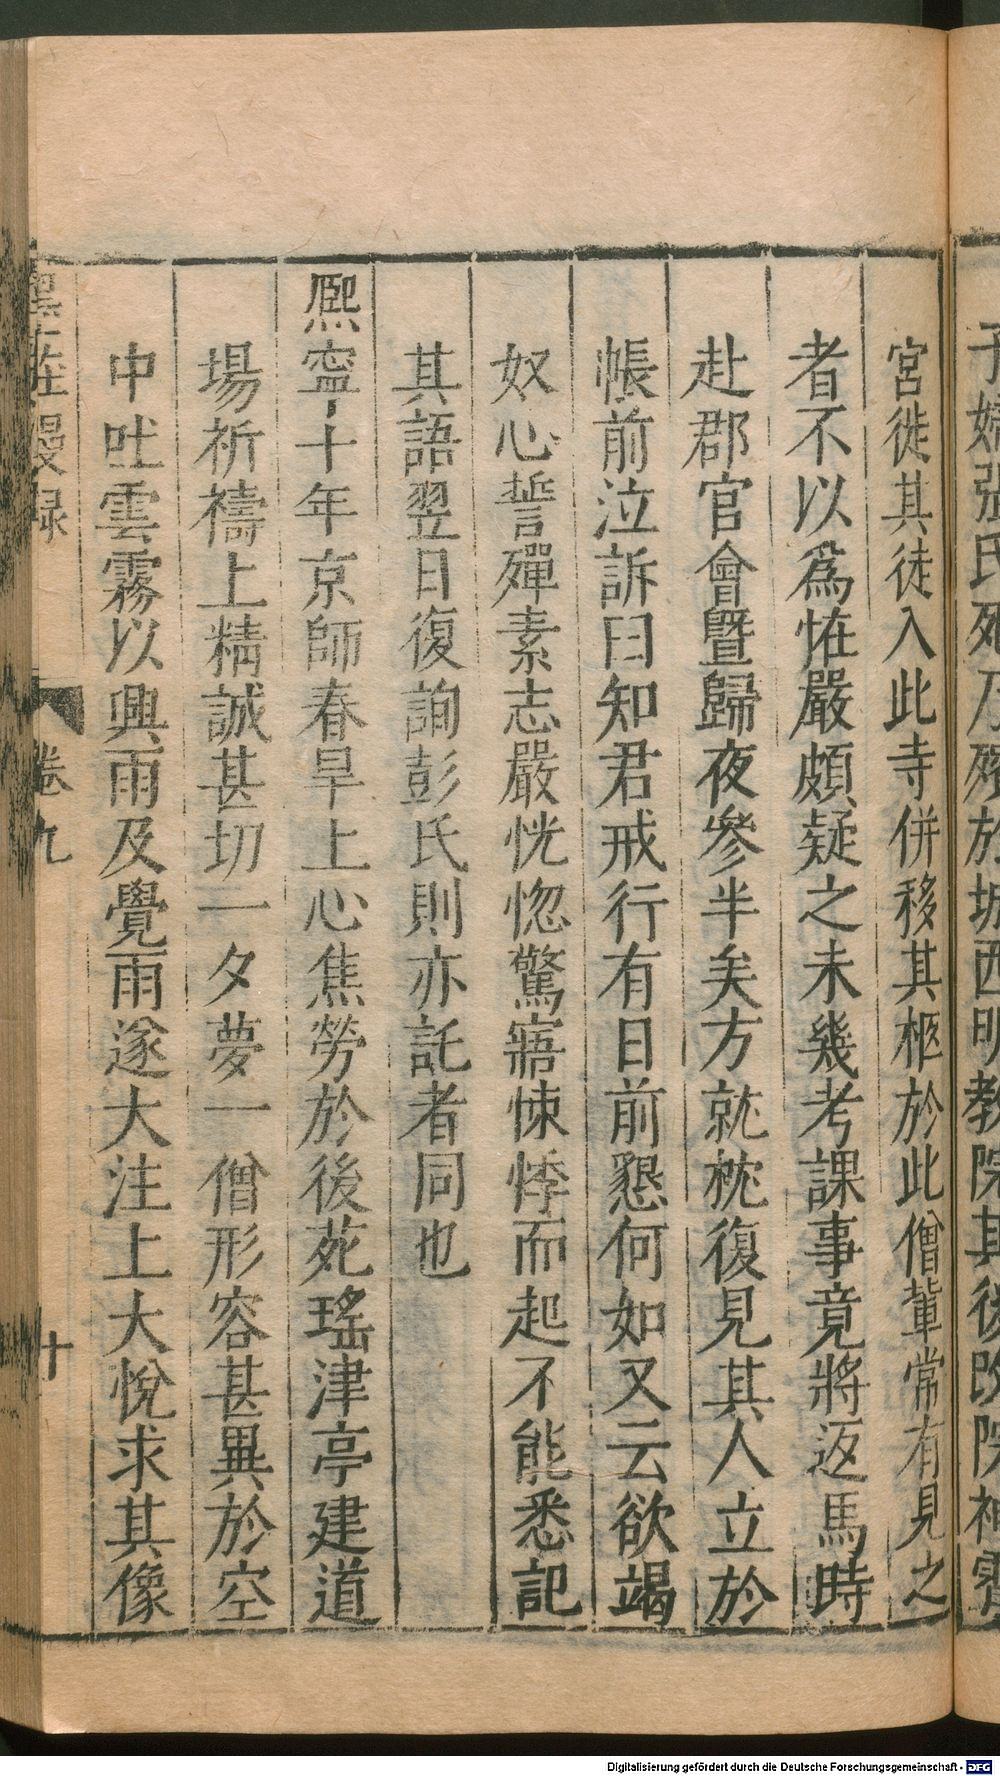 子婦張氏死乃殯於城西明教院其後改院神霄
宮徙其徒入此寺併移其柩於此僧輩常有見之
者不以爲怪嚴頗疑之未幾考課事竟將返馬時
赴郡官會暨歸夜參半矣方就枕復見其人立於
帳前泣訴曰知君戒行有日前懇何如又云欲竭
奴心誓殫素志嚴恍惚驚寤悚悸而起不能悉記
其語翌日復詢彭氏則亦託者同也
熈寧十年京師春旱上心焦勞於後苑瑤津亭建道
場祈禱上精誠甚切一夕夢一僧形容甚異於空
中吐雲霧以興雨及覺雨遂大注上大悅求其像
墨莊漫録 卷九 十
Digitalisierung gefördert durch die Deutsche Forschungsgemeinschaft - DFG